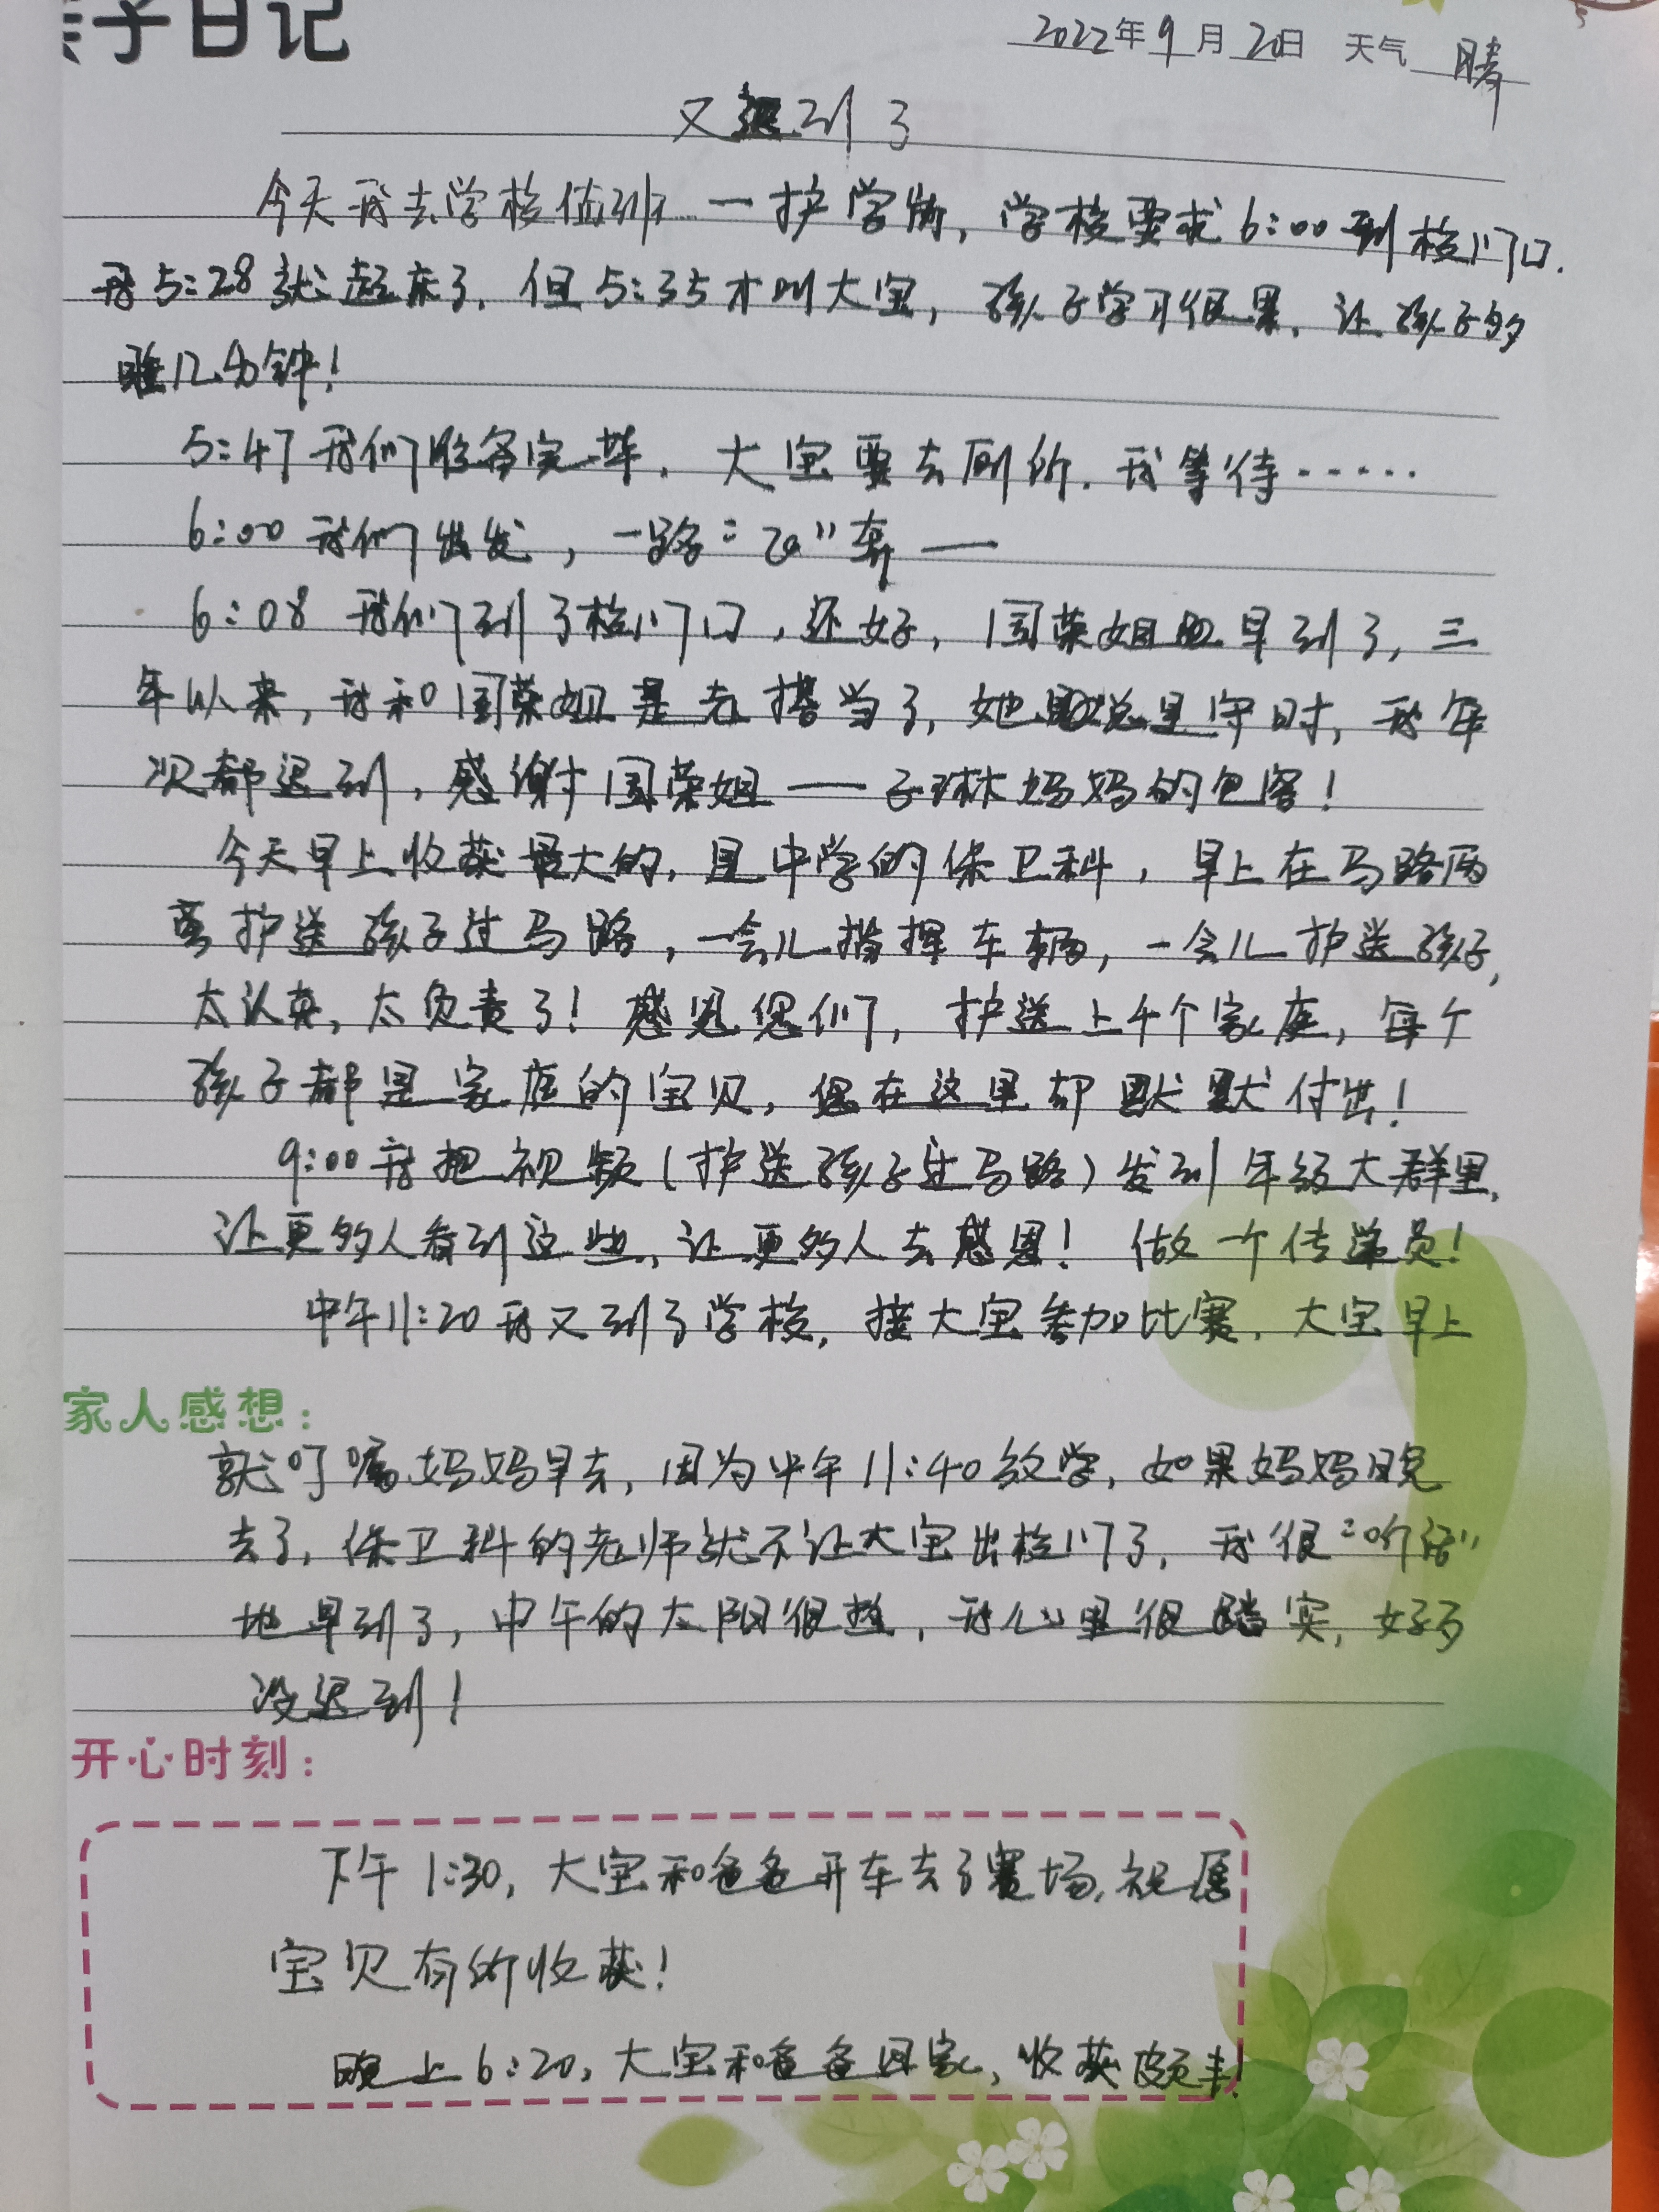 亲子日记
2022年9月20日 天气 晴
又迟到了
今天我去学校值班——护学岗，学校要求6:00到校门口.
我5:28就起床了，但5:35才叫大宝，孩子学习很累，让孩子多
睡几分钟！
5:47我们准备完毕，大宝要去厕所，我等待……
6:00我们出发，一路"飞"奔——
6:08 我们到了校门口，还好，国荣姐早到了，三
年以来，我和国荣姐是老搭当了，她总是守时，我每
次都迟到，感谢国荣姐——子琳妈妈的包容！
今天早上收获最大的，是中学的保卫科，早上在马路两
旁护送孩子过马路，一会儿指挥车辆，一会儿护送孩子，
太认真，太负责了！感恩您们，护送上千个家庭，每个
孩子都是家庭的宝贝，您在这里却默默付出！
9:00我把视频（护送孩子过马路）发到年级大群里，
让更多人看到这些，让更多人去感恩！做一个传递员！
中午11:20我又到了学校，接大宝参加比赛，大宝早上
家人感想：
就叮嘱妈妈早去，因为中午11:40放学，如果妈妈晚
去了，保卫科的老师就不让大宝出校门了，我很"听话"
地早到了，中午的太阳很热，我心里很踏实，好歹
没迟到！
开心时刻：
下午1:30，大宝和爸爸开车去了赛场，祝愿
宝贝有所收获！
晚上6:20，大宝和爸爸回家，收获颇丰！